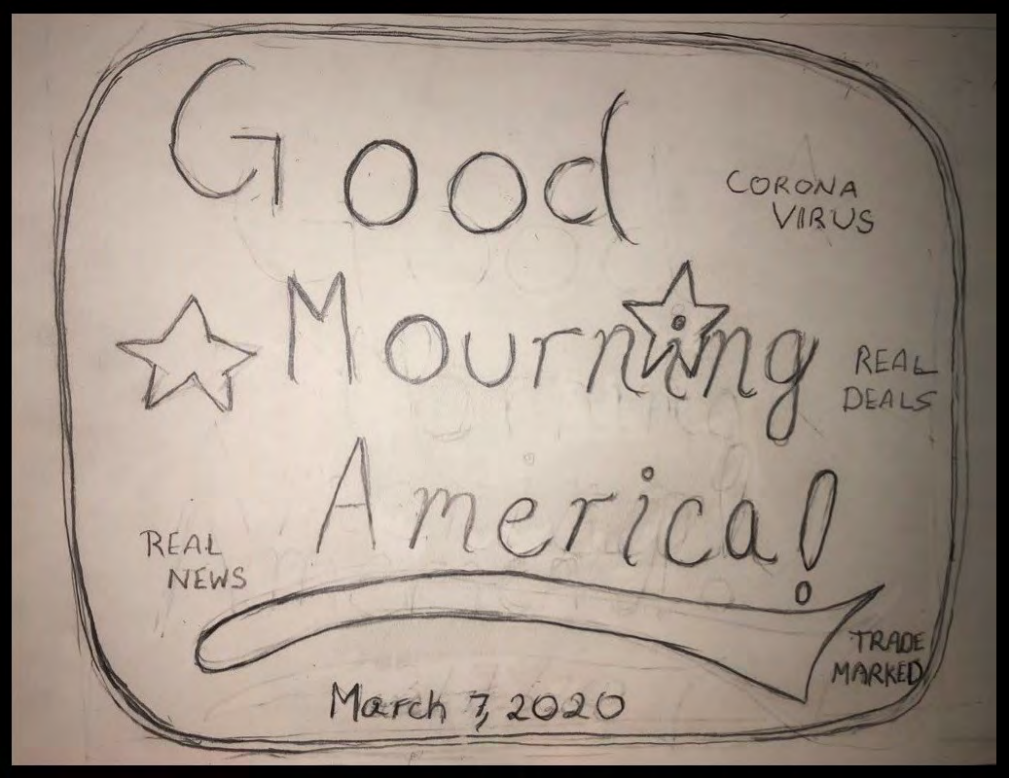 Good
CORONA
VIRUS
Mourning
REAL
DEALS
America!
REAL
NEWS
TRADE
MARKED
March 7, 2020